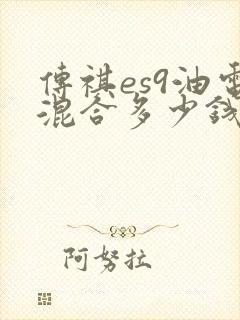 傳祺es9油電
混合多少錢
阿努拉